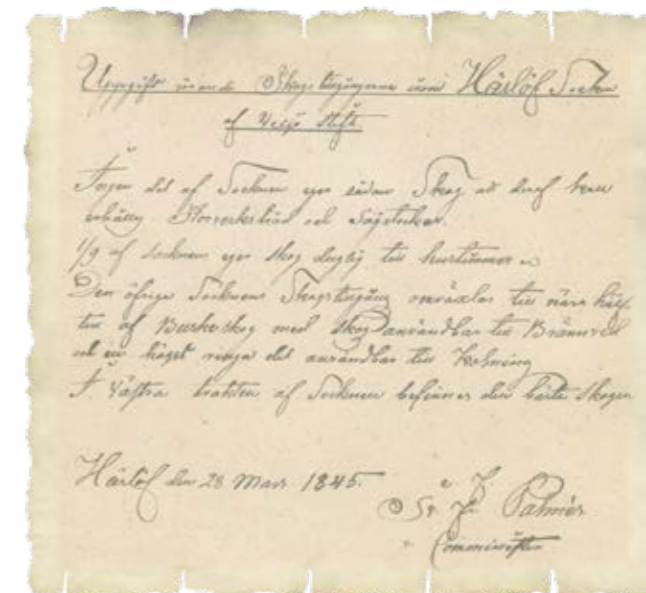 Uppgift rörande Skogstillgångarne inom Härlöf Socken
af Wexjö Stift
Ingen del af Socknen eger sådan Skog att deraf kan
erhållas Storverksträd och Sågstockar.
1/9 af Socknen eger skog duglig till hustimmer
Den öfriga Socknens Skogstillgång omväxlar till nära hälf-
ten af Buskskog med skog användbar till Brännved
och en högst ringa del användbar till Kolning
I Västra trakten af Socknen befinnes den bästa Skogen
Härlöf den 28 Mars 1845.
Palmér
Comminister